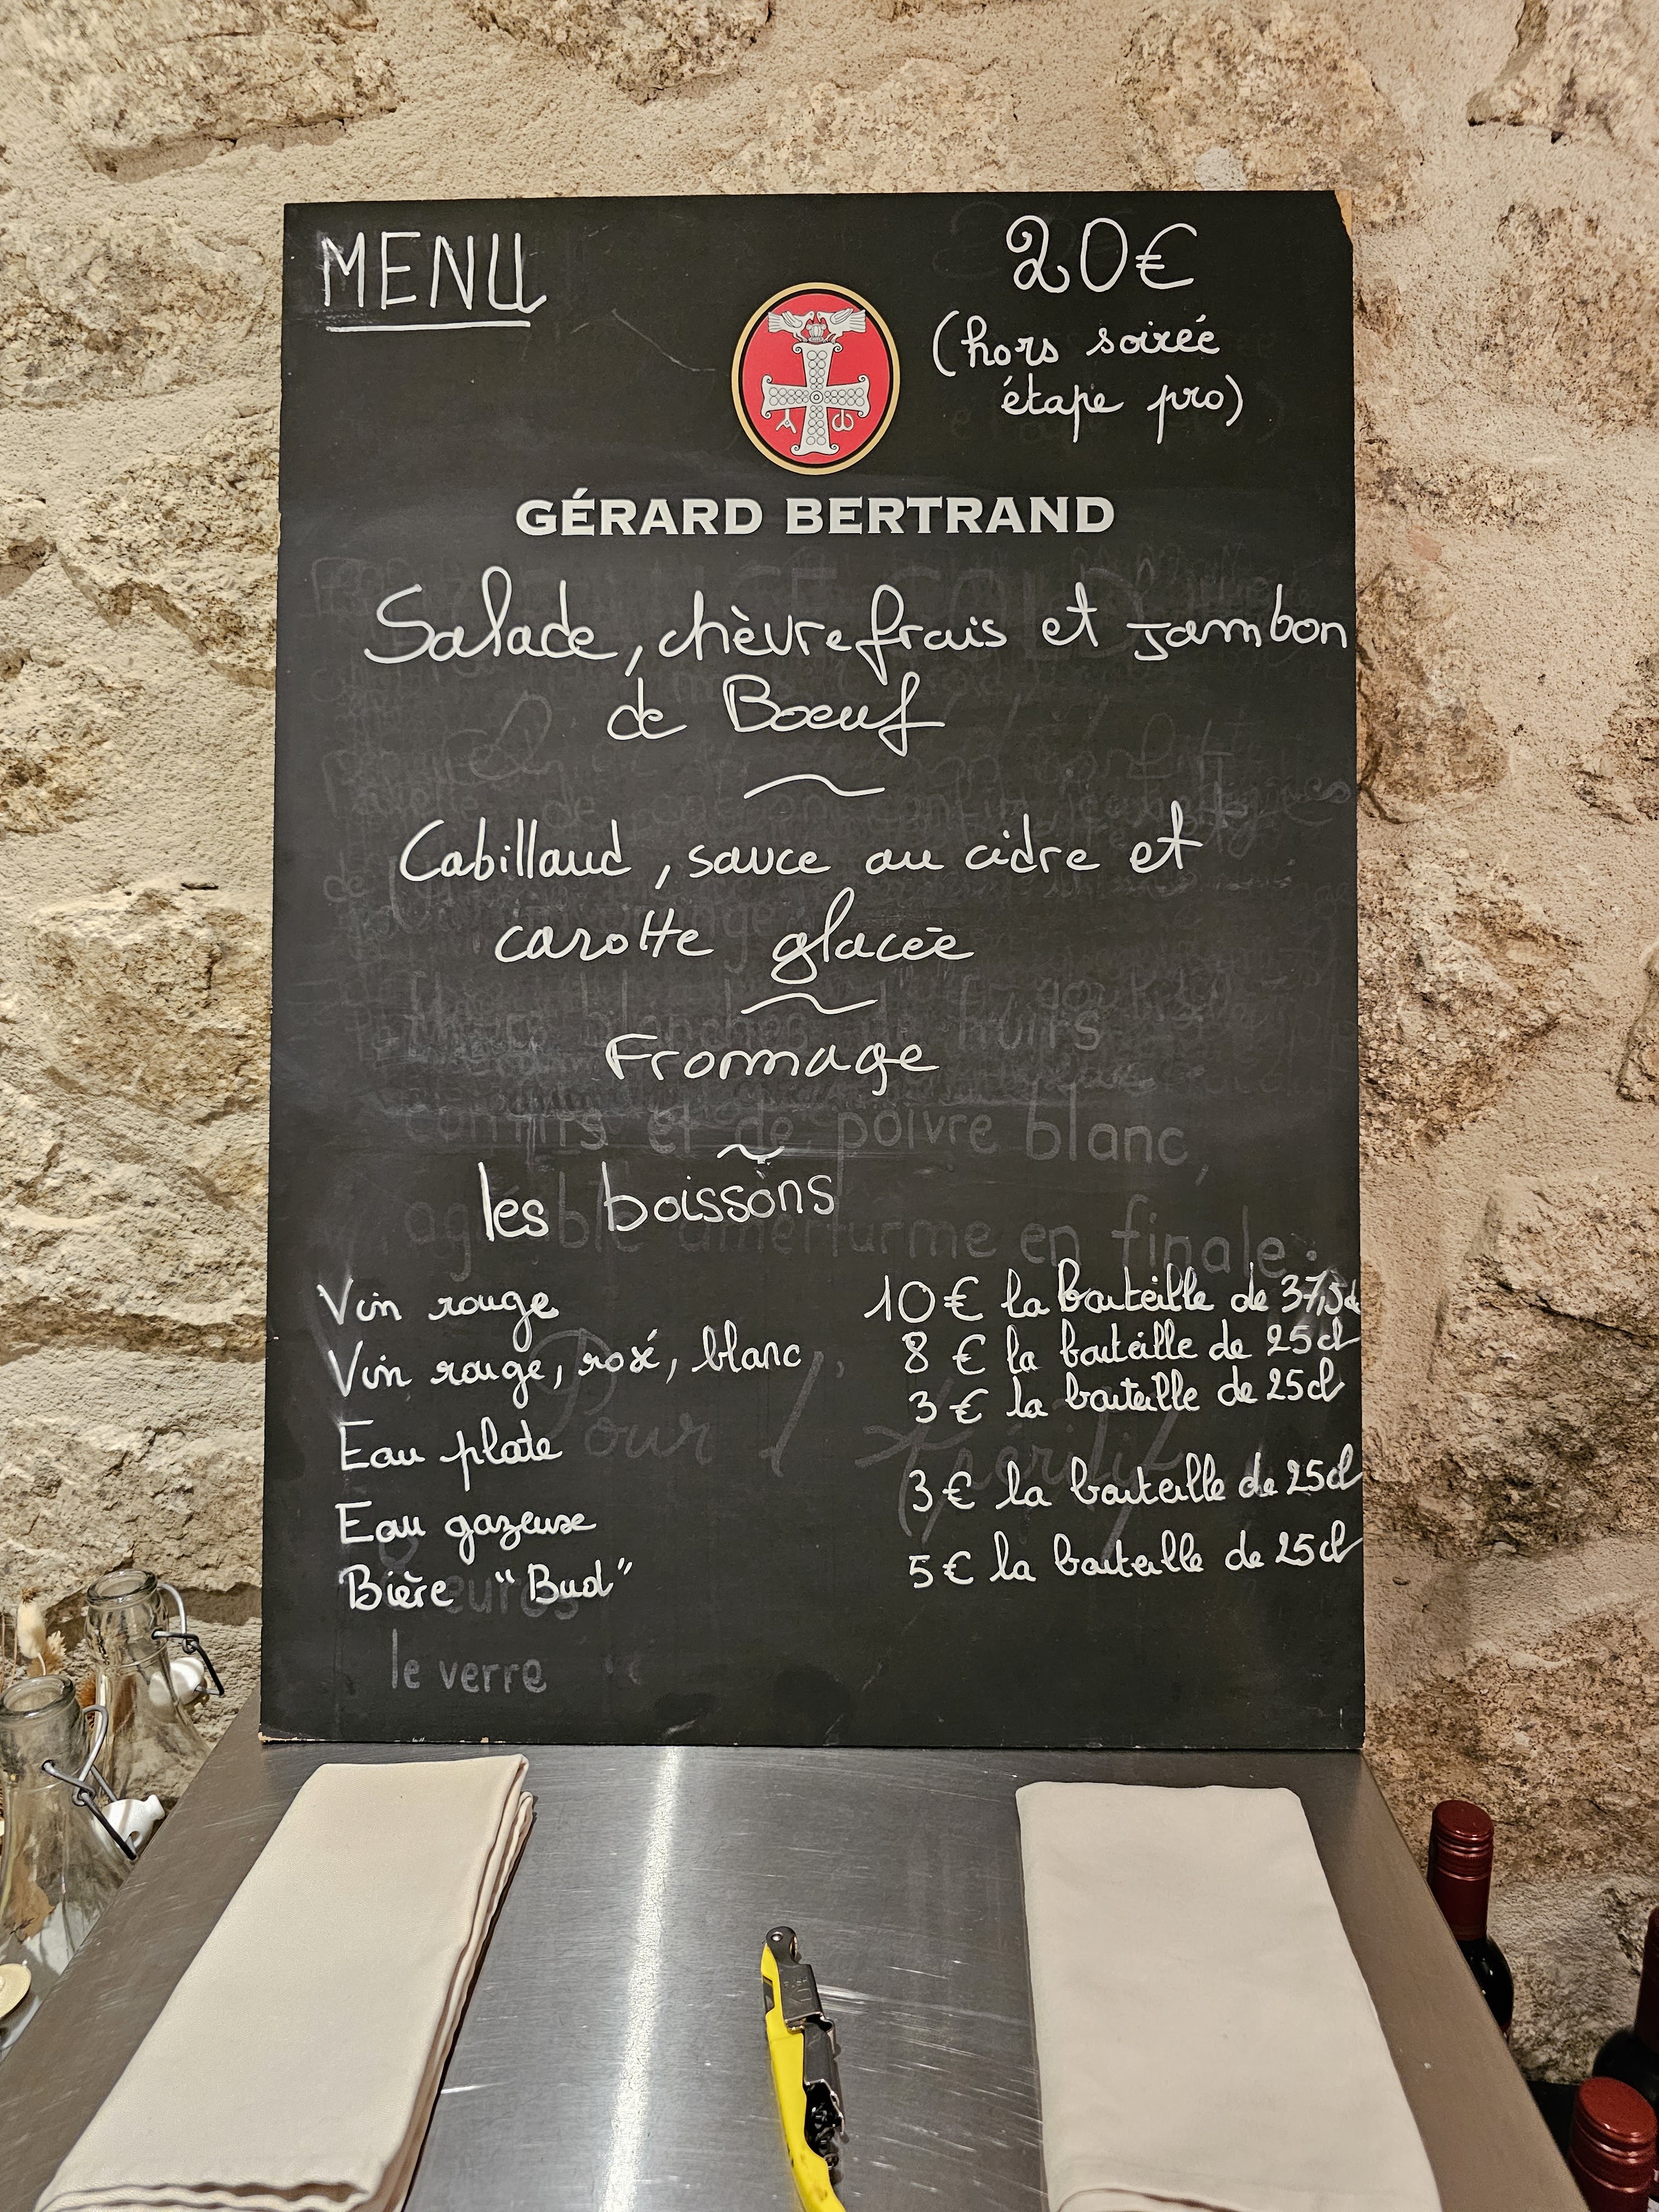 MENU
20€
(hors soirée
étape pro)
GÉRARD BERTRAND
Salade, chèvre frais et jambon
de Boeuf
Cabillaud, sauce au cidre et
carotte glacée
Fromage
confits et de poivre blanc,
les boissons
agréable amerturme en finale.
Vin rouge 10€ la bouteille de 37,5cl
Vin rouge, rosé, blanc 8€ la bouteille de 25cl
3€ la bouteille de 25cl
Pour l'Apéritif
Eau plate
3€ la bouteille de 25cl
Eau gazeuse
Bière "Bud" 5€ la bouteille de 25cl
euros
le verre